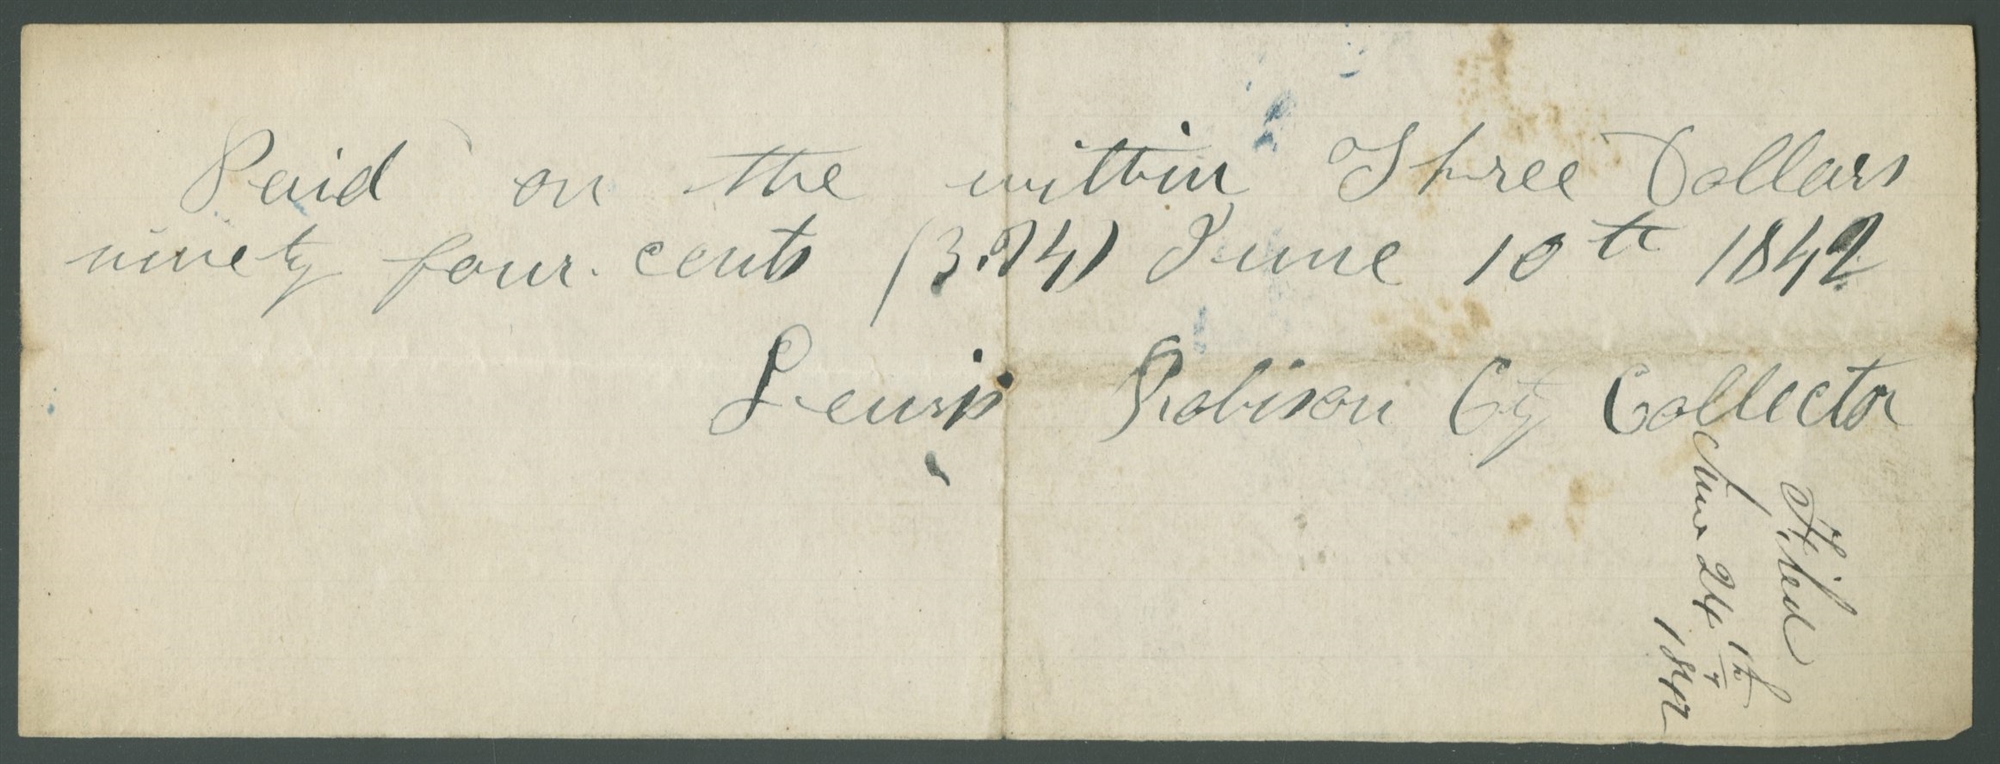 Paid on the within Three Dollars
ninety four cents (3.94) June 10th 1842
Lewis Robison City Collector
Filed
June 24th
1842